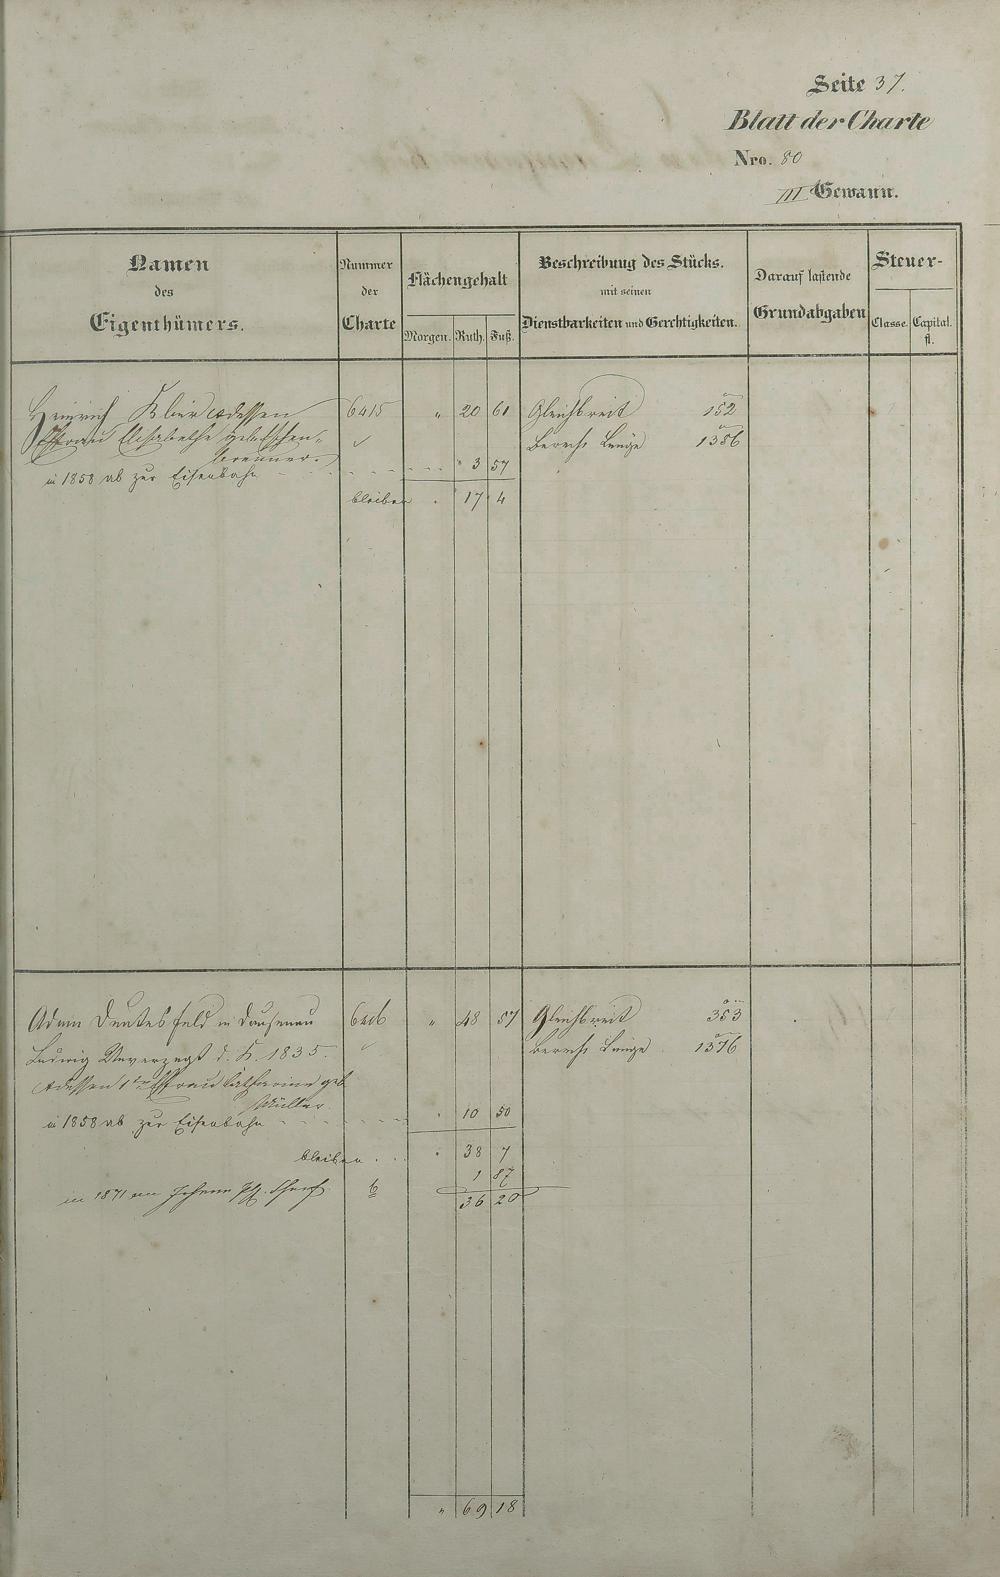 Seite 37.
Blatt der Charte
Nro. 80
III Gewann.
Namen
des
Eigenthümers.
Nummer
der
Charte
Flächengehalt
Morgen. Ruth. Fuß.
Beschreibung des Stücks.
mit seinen
Dienstbarkeiten und Gerechtigkeiten.
Darauf lastende
Grundabgaben
Steuer-
Classe. Capital.
fl.
Heinrich 6415 " 20 61 Gleichbreit 152
Ehfrau Elisabethe 1356
3 57
in 1858 ab zur Eisenbahn
bleiben . 17 4
Adam in Dausenau 6416 " 48 57 Gleichbreit 353
Ludwig Unverzagt d. K. 1835. 1376
dessen 1te Ehfrau Catharine geb
Müller
in 1858 ab zur Eisenbahn . 10 50
bleiben . . . 38 7
1 87
in 1871 an Johann Ph. b
36 20
" 69 18